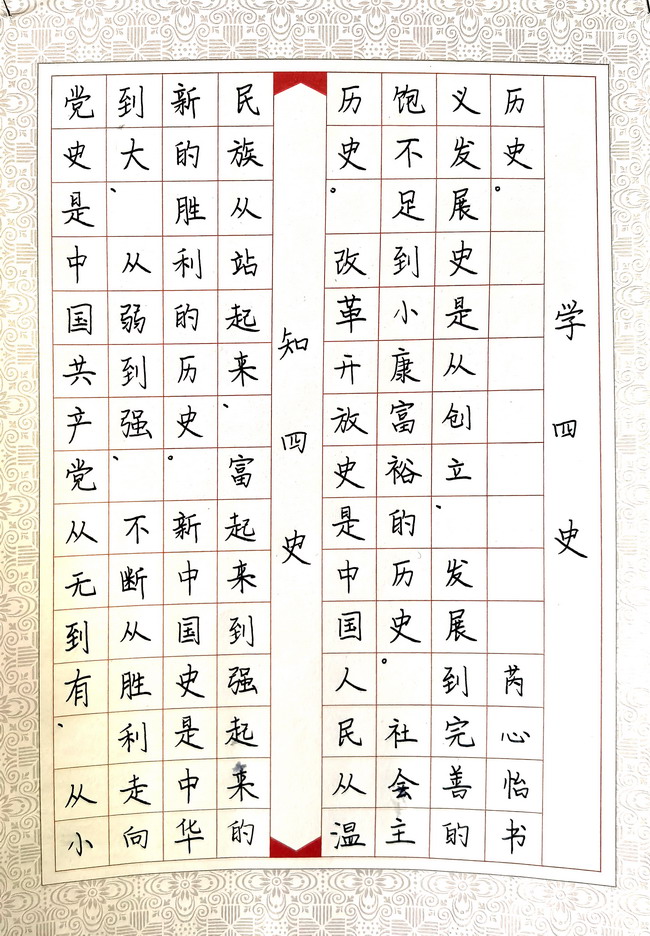 党史是中国共产党从无到有、从小
到大、从弱到强、不断从胜利走向
新的胜利的历史。新中国史是中华
民族从站起来、富起来到强起来的
知四史
历史。改革开放史是中国人民从温
饱不足到小康富裕的历史。社会主
义发展史是从创立、发展到完善的
历史。
芮心怡书
学四史